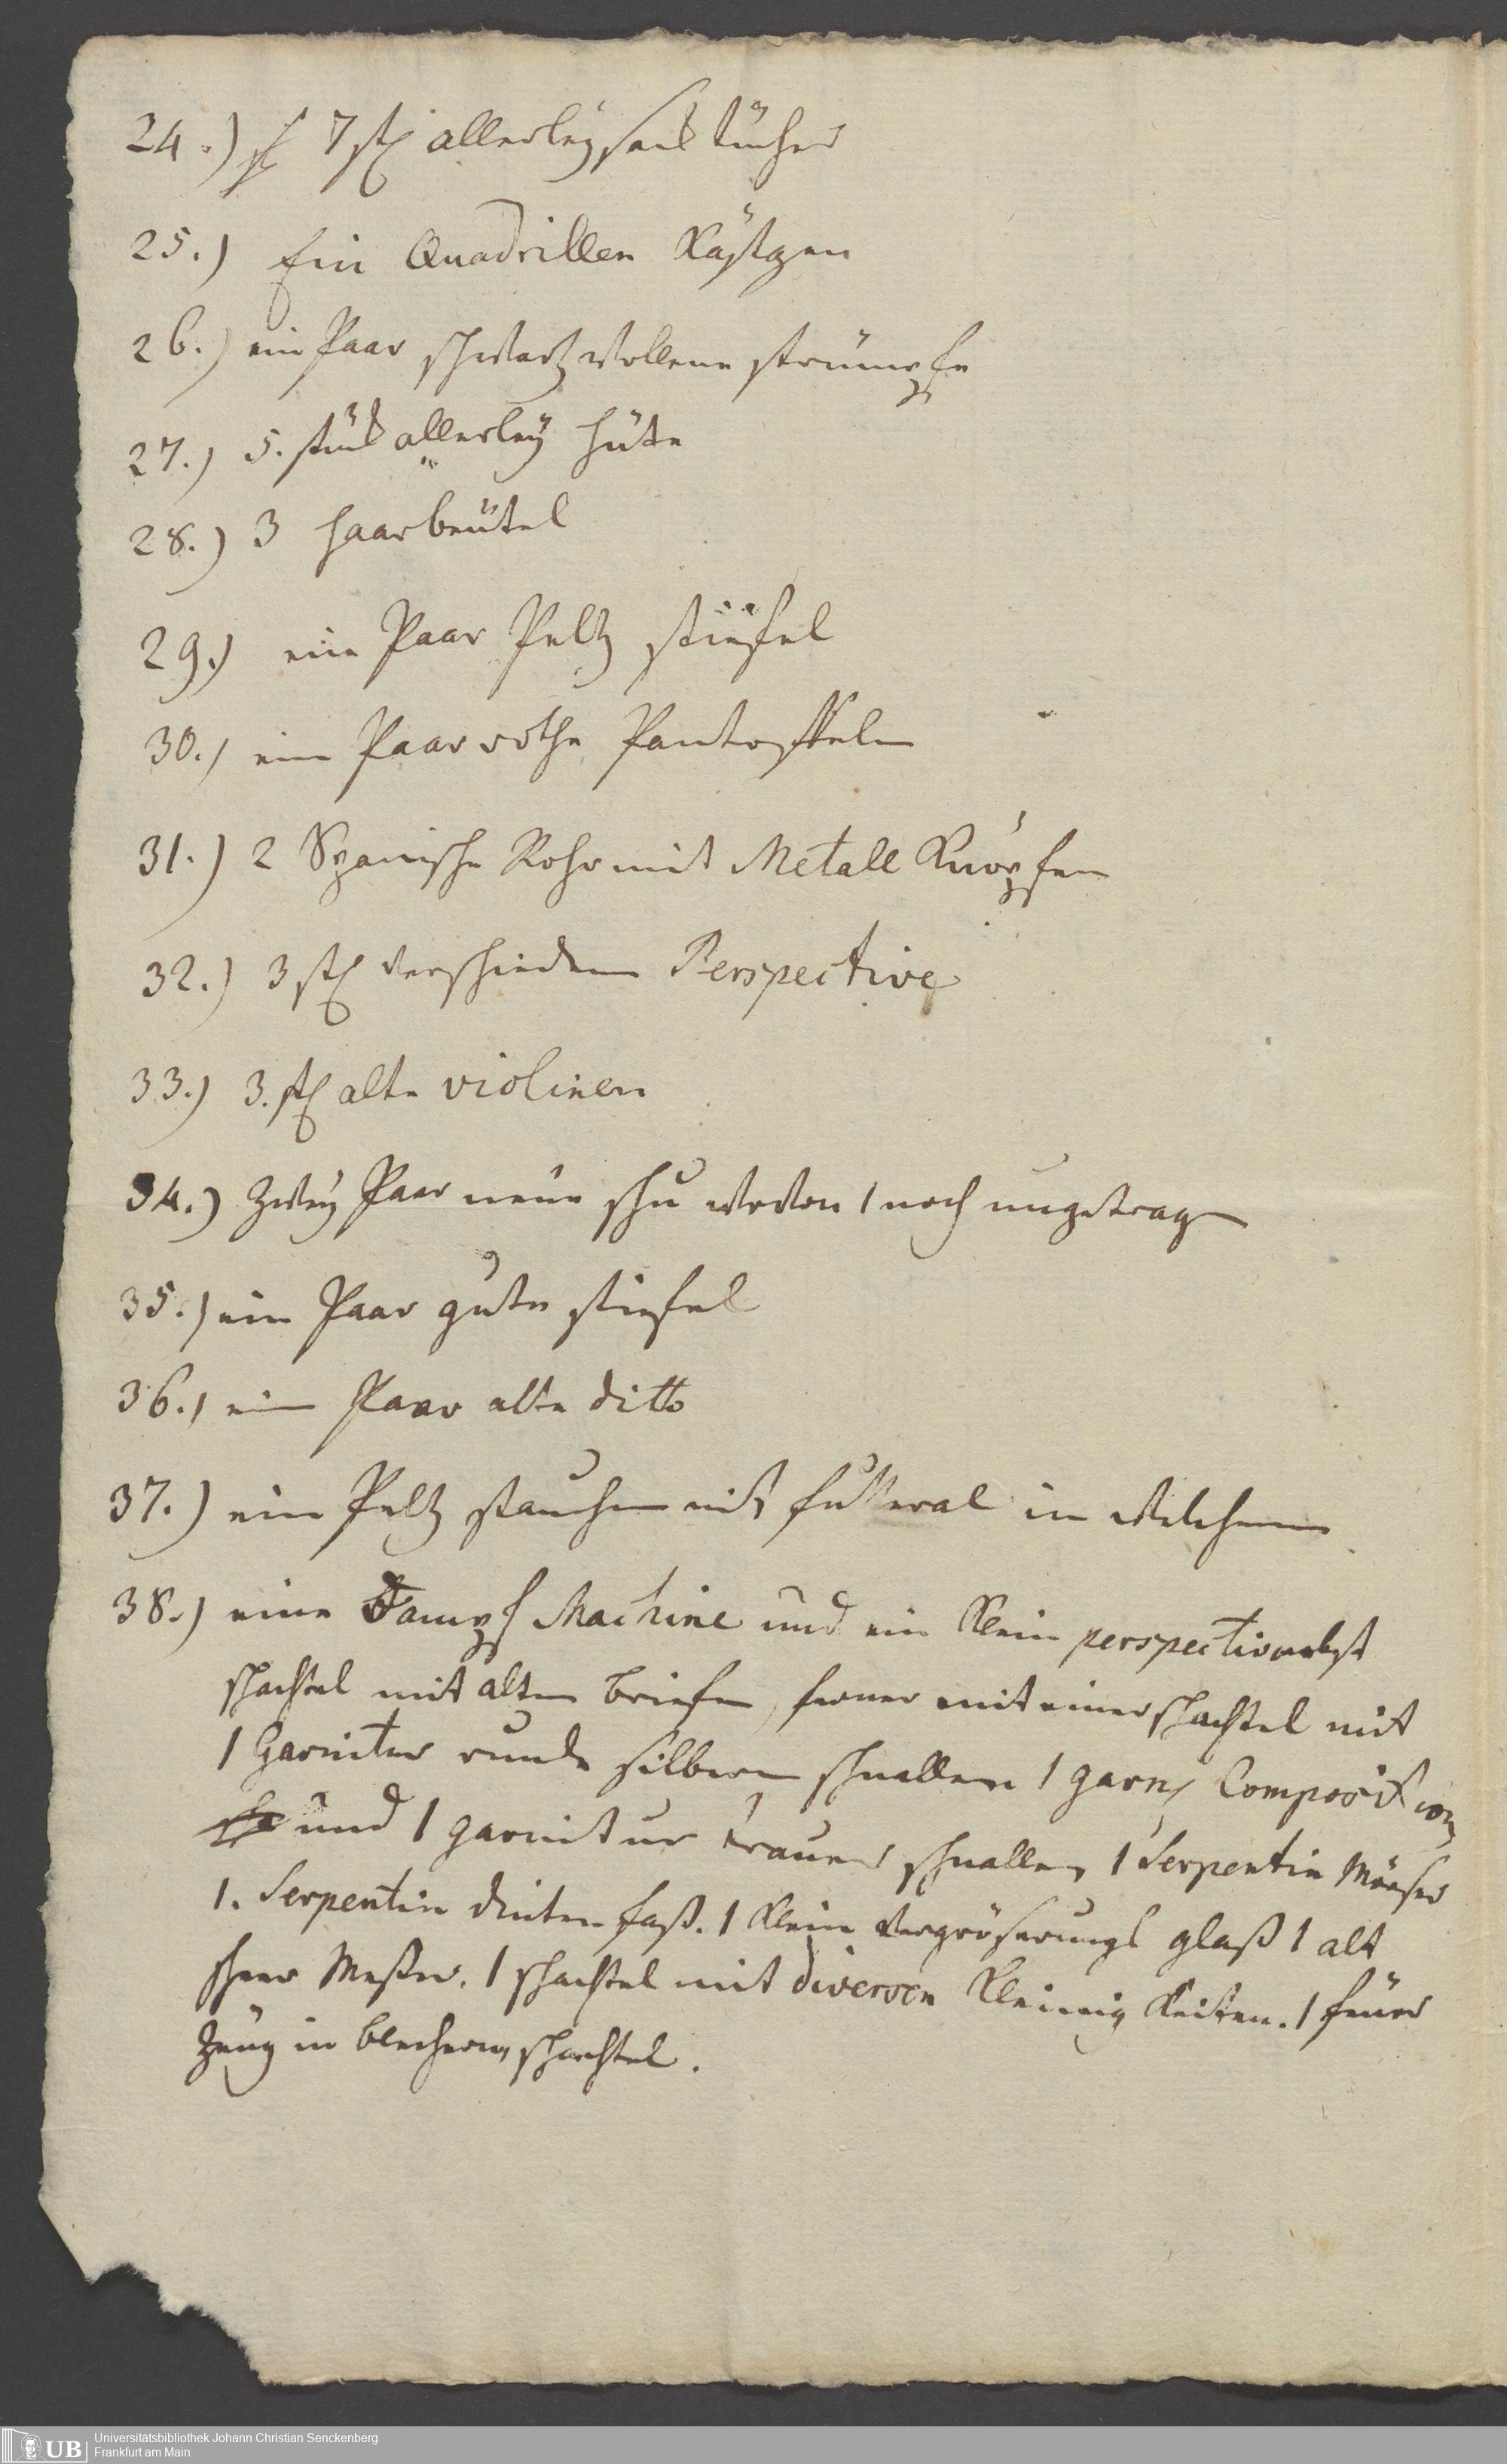 24.) 7 st allerley sack tücher
25.) Ein Quadrillen Kästgen
26.) ein Paar schwartz wollene strümpfe
27.) 5. stück allerley hüte
28.) 3 haarbeütel
29.) ein Paar Peltz stiefel
30.) ein Paar rothe Pantoffeln
31.) 2 Spanische Rohr mit Metall Knöpfen
32.) 3 st verschiedene Perspective
33.) 3. st alte violinen
34.) Zwey Paar neue schu wovon 1 noch ungetragen
35.) ein Paar gute stiefel
36.) ein Paar alte ditto
37.) ein Peltz stauchen mit futteral in welchem
38.) eine Dampf Machine und ein klein perspectiv nebst
schachtel mit alten briefen, ferner mit einer schachtel mit
1 Garnitur runde silberne schnallen 1 garn Composition
und 1 garnitur trauer schnallen, 1 Serpentin Mörser
1. Serpentin dinten faß. 1 klein vergröserungs glaß 1 alt
scheer Messer. 1 schachtel mit diversen Kleinig keiten. 1 feüer
Zeug in blecherner schachtel.
UB
Universitätsbibliothek Johann Christian Senckenberg
Frankfurt am Main